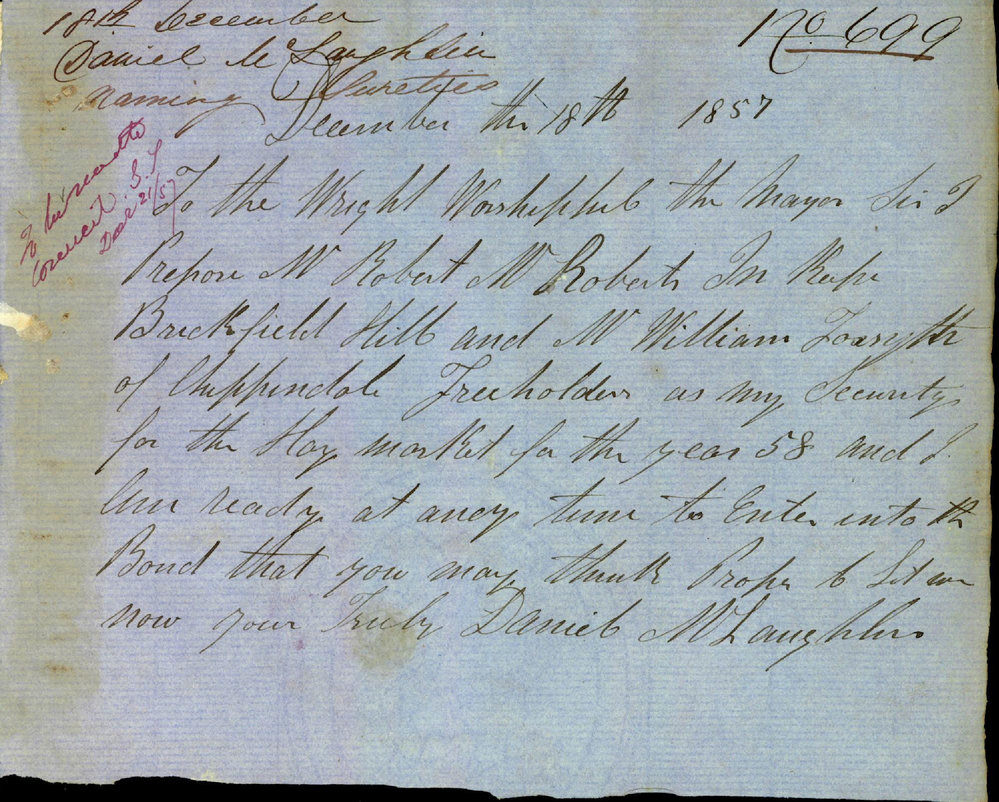 18th December
Daniel McLaughlin
naming Sureties
No 699
December the 18th 1857
To
Council
Decr 21/57
To the Wright Worshiphul the Mayor Sir I
Prepose Mr Robert McRoberts In Keper
Brickfield Hill and Mr William Forsyth
of Chippindale Freeholders as my Security
for the Hay market for the year 58 and I
Am ready at aney time to Enter into the
Bond that you may think Proper to Let me
now your Truly Daniel McLaughlin